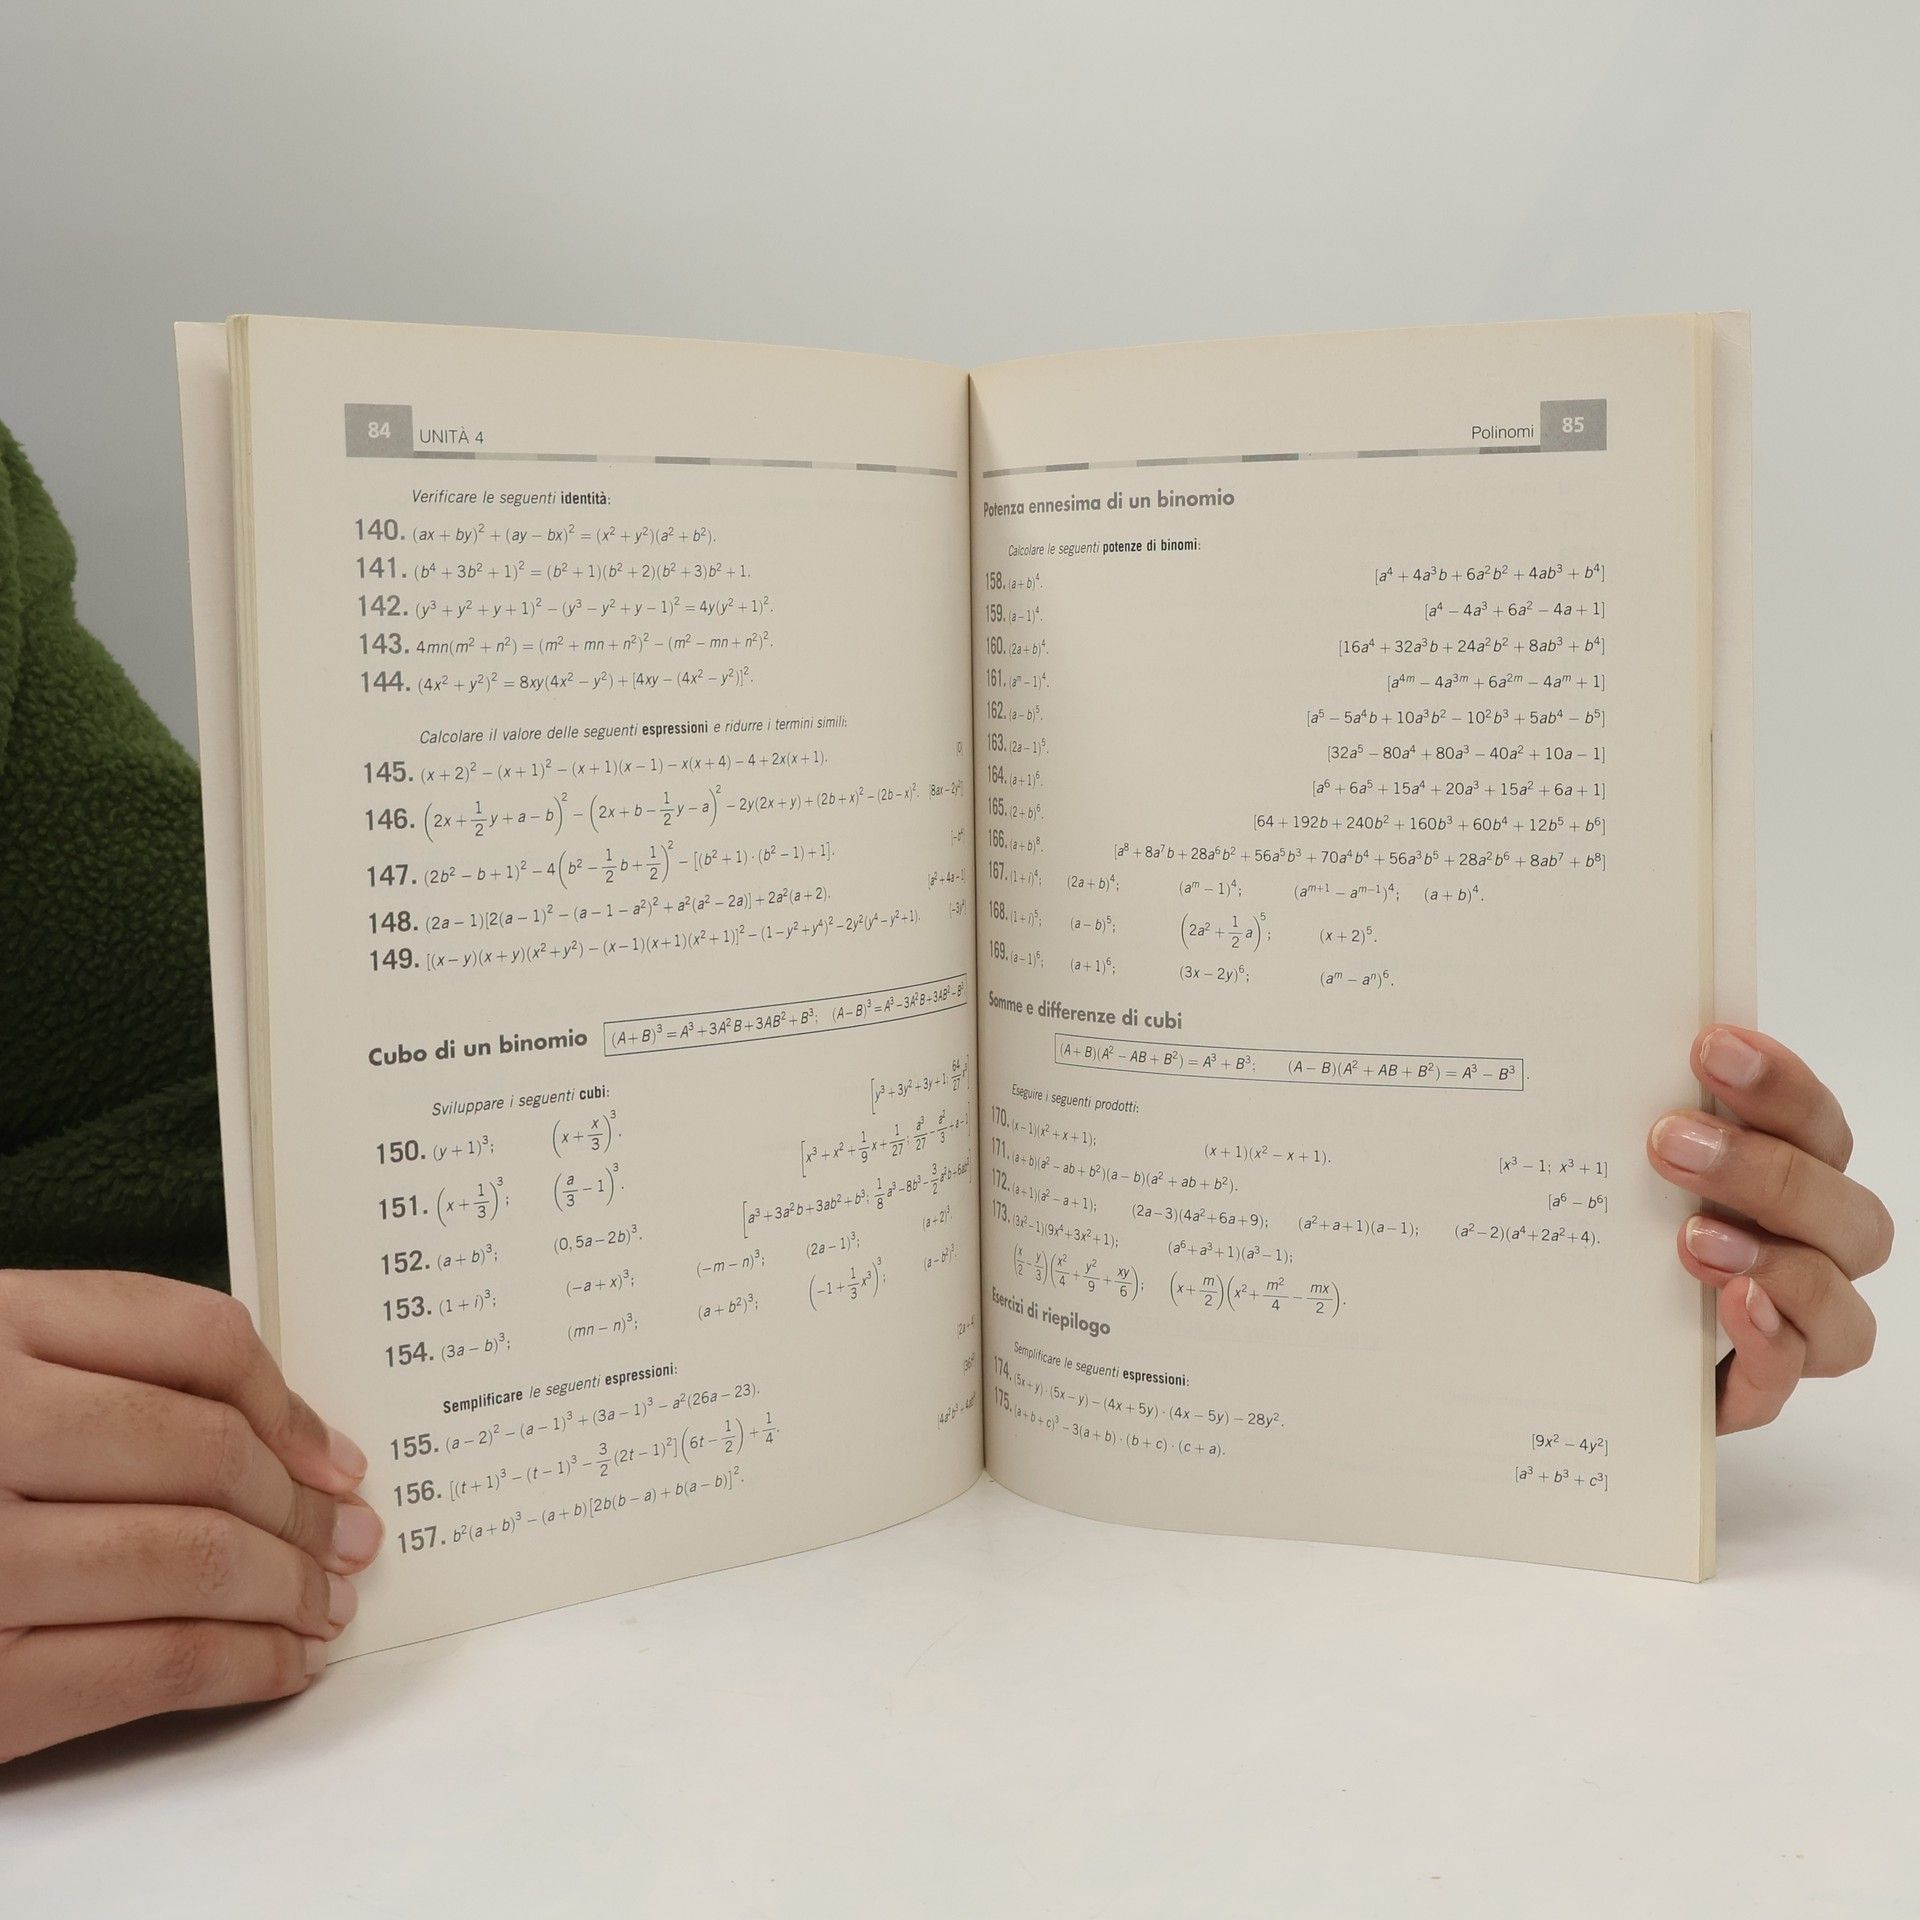 84 UNITÀ 4
Verificare le seguenti identità:
140. (ax + by)² + (ay − bx)² = (x² + y²)(a² + b²).
141. (b⁴ + 3b² + 1)² = (b² + 1)(b² + 2)(b² + 3)b² + 1.
142. (y³ + y² + y + 1)² − (y³ − y² + y − 1)² = 4y(y² + 1)².
143. 4mn(m² + n²) = (m² + mn + n²)² − (m² − mn + n²)².
144. (4x² + y²)² = 8xy(4x² − y²) + [4xy − (4x² − y²)]².
Calcolare il valore delle seguenti espressioni e ridurre i termini simili:
145. (x + 2)² − (x + 1)² − (x + 1)(x − 1) − x(x + 4) − 4 + 2x(x + 1). [0]
146. (2x + 1/2 y + a − b)² − (2x + b − 1/2 y − a)² − 2y(2x + y) + (2b + x)² − (2b − x)². [8ax − 2y²]
147. (2b² − b + 1)² − 4(b² − 1/2 b + 1/2)² − [(b² + 1) · (b² − 1) + 1]. [−b⁴]
148. (2a − 1)[2(a − 1)² − (a − 1 − a²)² + a²(a² − 2a)] + 2a²(a + 2). [a² + 4a − 1]
149. [(x − y)(x + y)(x² + y²) − (x − 1)(x + 1)(x² + 1)]² − (1 − y² + y⁴)² − 2y²(y⁴ − y² + 1). [−3y⁴]
Cubo di un binomio (A + B)³ = A³ + 3A²B + 3AB² + B³; (A − B)³ = A³ − 3A²B + 3AB² − B³
Sviluppare i seguenti cubi:
150. (y + 1)³; (x + x/3)³. [y³ + 3y² + 3y + 1; 64/27 x³]
151. (x + 1/3)³; (a/3 − 1)³. [x³ + x² + 1/9 x + 1/27; a³/27 − a²/3 + a − 1]
152. (a + b)³; (0,5a − 2b)³. [a³ + 3a²b + 3ab² + b³; 1/8 a³ − 8b³ − 3/2 a²b + 6ab²]
153. (1 + i)³; (−a + x)³; (−m − n)³; (2a − 1)³; (a + 2)³.
154. (3a − b)³; (mn − n)³; (a + b²)³; (−1 + 1/3 x³)³; (a − b²)³.
Semplificare le seguenti espressioni:
155. (a − 2)² − (a − 1)³ + (3a − 1)³ − a²(26a − 23).
156. [(t + 1)³ − (t − 1)³ − 3/2 (2t − 1)²](6t − 1/2) + 1/4.
157. b²(a + b)³ − (a + b)[2b(b − a) + b(a − b)]².
Polinomi 85
Potenza ennesima di un binomio
Calcolare le seguenti potenze di binomi:
158. (a + b)⁴. [a⁴ + 4a³b + 6a²b² + 4ab³ + b⁴]
159. (a − 1)⁴. [a⁴ − 4a³ + 6a² − 4a + 1]
160. (2a + b)⁴. [16a⁴ + 32a³b + 24a²b² + 8ab³ + b⁴]
161. (aᵐ − 1)⁴. [a⁴ᵐ − 4a³ᵐ + 6a²ᵐ − 4aᵐ + 1]
162. (a − b)⁵. [a⁵ − 5a⁴b + 10a³b² − 10²b³ + 5ab⁴ − b⁵]
163. (2a − 1)⁵. [32a⁵ − 80a⁴ + 80a³ − 40a² + 10a − 1]
164. (a + 1)⁶. [a⁶ + 6a⁵ + 15a⁴ + 20a³ + 15a² + 6a + 1]
165. (2 + b)⁶. [64 + 192b + 240b² + 160b³ + 60b⁴ + 12b⁵ + b⁶]
166. (a + b)⁸. [a⁸ + 8a⁷b + 28a⁶b² + 56a⁵b³ + 70a⁴b⁴ + 56a³b⁵ + 28a²b⁶ + 8ab⁷ + b⁸]
167. (1 + i)⁴; (2a + b)⁴; (aᵐ − 1)⁴; (aᵐ⁺¹ − aᵐ⁻¹)⁴; (a + b)⁴.
168. (1 + i)⁵; (a − b)⁵; (2a² + 1/2 a)⁵; (x + 2)⁵.
169. (a − 1)⁶; (a + 1)⁶; (3x − 2y)⁶; (aᵐ − aⁿ)⁶.
Somme e differenze di cubi
(A + B)(A² − AB + B²) = A³ + B³; (A − B)(A² + AB + B²) = A³ − B³.
Eseguire i seguenti prodotti:
170. (x − 1)(x² + x + 1); (x + 1)(x² − x + 1). [x³ − 1; x³ + 1]
171. (a + b)(a² − ab + b²)(a − b)(a² + ab + b²). [a⁶ − b⁶]
172. (a + 1)(a² − a + 1); (2a − 3)(4a² + 6a + 9); (a² + a + 1)(a − 1); (a² − 2)(a⁴ + 2a² + 4).
173. (3x² − 1)(9x⁴ + 3x² + 1); (a⁶ + a³ + 1)(a³ − 1);
(x/2 − y/3)(x²/4 + y²/9 + xy/6); (x + m/2)(x² + m²/4 − mx/2).
Esercizi di riepilogo
Semplificare le seguenti espressioni:
174. (5x + y) · (5x − y) − (4x + 5y) · (4x − 5y) − 28y². [9x² − 4y²]
175. (a + b + c)³ − 3(a + b) · (b + c) · (c + a). [a³ + b³ + c³]